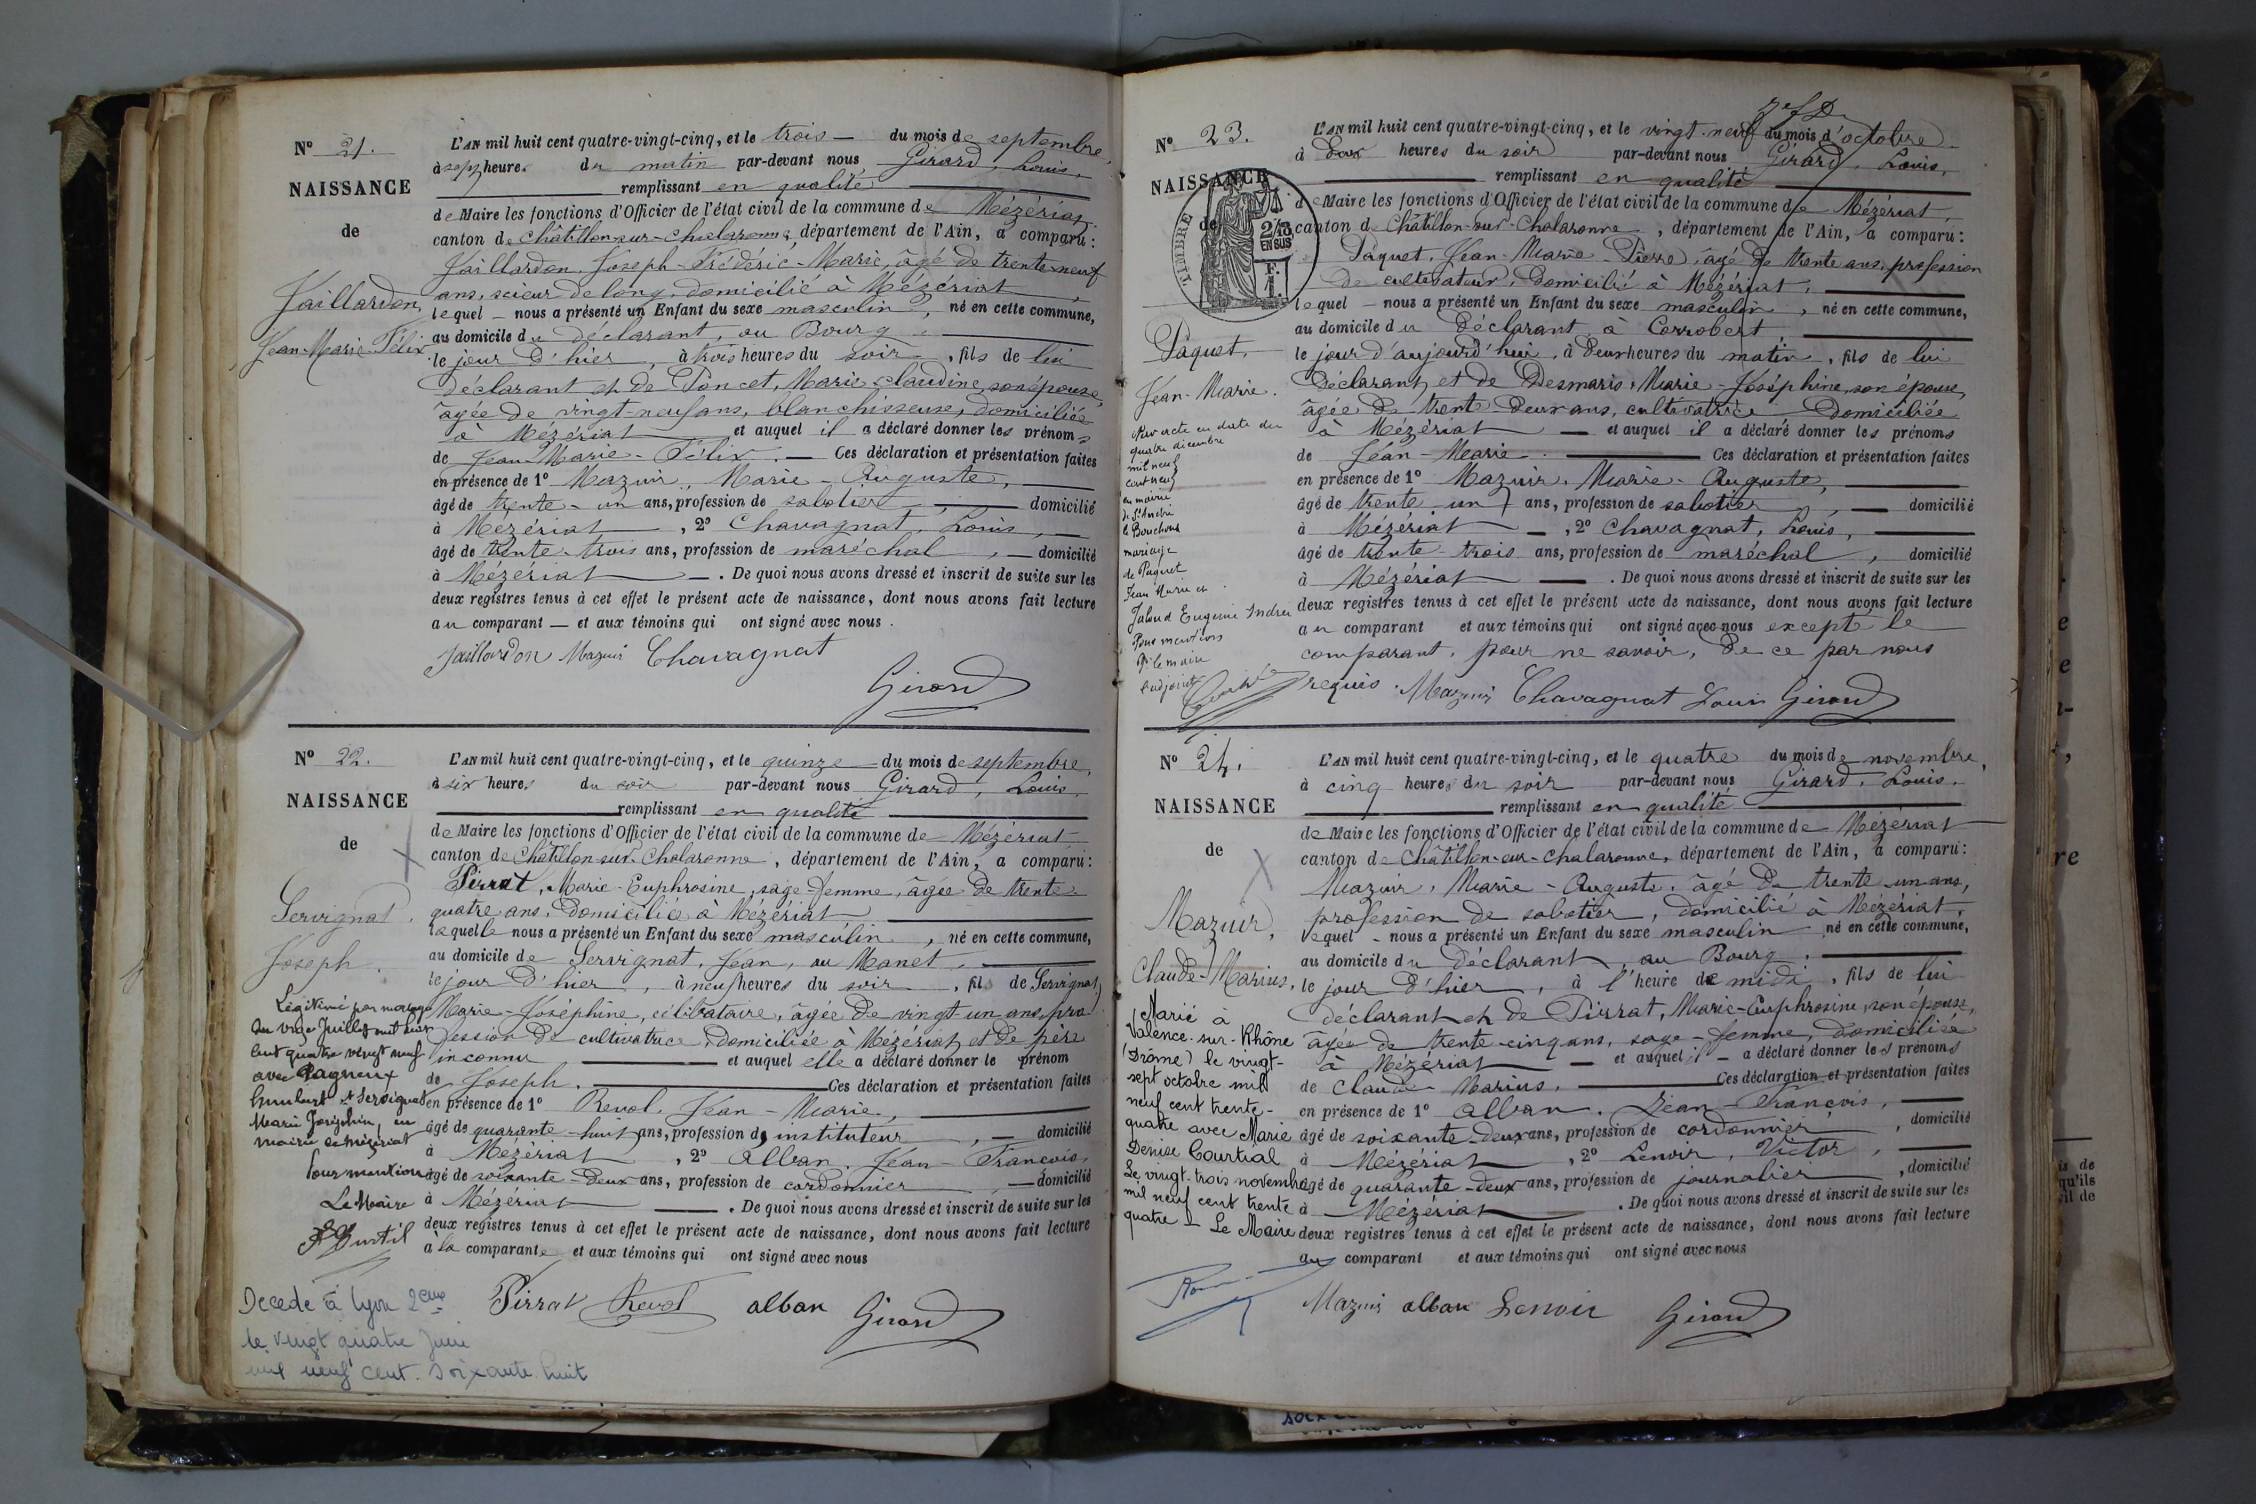 N° 21.
NAISSANCE
de
Jaillardon,
Jean-Marie-Félix
L'AN mil huit cent quatre-vingt-cinq, et le trois — du mois de septembre,
à sept heures du matin par-devant nous Girard, Louis,
remplissant en qualité
de Maire les fonctions d'Officier de l'état civil de la commune de Mézériat,
canton de Châtillon-sur-Chalaronne, département de l'Ain, a comparu :
Jaillardon, Joseph-Frédéric-Marie, âgé de trente-neuf
ans, scieur de long, domicilié à Mézériat,
lequel — nous a présenté un Enfant du sexe masculin, né en cette commune,
au domicile du déclarant, au Bourg,
le jour d'hier, à trois heures du soir, fils de lui
déclarant et de Poncet, Marie-Claudine, son épouse,
âgée de vingt-neuf ans, blanchisseuse, domiciliée
à Mézériat et auquel il a déclaré donner les prénoms
de Jean-Marie-Félix. — Ces déclaration et présentation faites
en présence de 1° Mazuir, Marie-Auguste,
âgé de trente-un ans, profession de sabotier, domicilié
à Mézériat, 2° Chavagnat, Louis, —
âgé de trente-trois ans, profession de maréchal, — domicilié
à Mézériat —. De quoi nous avons dressé et inscrit de suite sur les
deux registres tenus à cet effet le présent acte de naissance, dont nous avons fait lecture
au comparant — et aux témoins qui ont signé avec nous.
Jaillardon Mazuir Chavagnat
Girard
N° 22.
NAISSANCE
de
Servignat,
Joseph.
Légitimé par mariage
du vingt Juillet mil huit
cent quatre vingt neuf
avec Pagneux
humbert et Servignat
Marie Joséphine, en
mairie de Mézériat
Pour mention
Le Maire
Décédé à Lyon 2eme
le vingt quatre Juin
mil neuf cent soixante huit
L'AN mil huit cent quatre-vingt-cinq, et le quinze — du mois de septembre,
à six heures du soir par-devant nous Girard, Louis,
remplissant en qualité
de Maire les fonctions d'Officier de l'état civil de la commune de Mézériat,
canton de Châtillon-sur-Chalaronne, département de l'Ain, a comparu :
Pirrat, Marie-Euphrosine, sage-femme, âgée de trente-
quatre ans, domiciliée à Mézériat
laquelle nous a présenté un Enfant du sexe masculin, né en cette commune,
au domicile de Servignat, Jean, au Manet,
le jour d'hier, à neuf heures du soir, fils de Servignat,
Marie-Joséphine, célibataire, âgée de vingt-un ans, pro-
fession de cultivatrice, domiciliée à Mézériat et de père
inconnu et auquel elle a déclaré donner le prénom
de Joseph. Ces déclaration et présentation faites
en présence de 1° Revol, Jean-Marie,
âgé de quarante-huit ans, profession d'instituteur, — domicilié
à Mézériat, 2° Alban, Jean-François,
âgé de soixante-deux ans, profession de cordonnier — domicilié
à Mézériat —. De quoi nous avons dressé et inscrit de suite sur les
deux registres tenus à cet effet le présent acte de naissance, dont nous avons fait lecture
à la comparante et aux témoins qui ont signé avec nous
Pirrat Revol alban Girard
N° 23.
NAISSANCE
de
TIMBRE
2/10
EN SUS
F.
1
Pâquet,
Jean-Marie.
Par acte en date du
quatre décembre
mil neuf
cent neuf
en mairie
de St André
le Bouchoux
mariage
de Paquet
Jean Marie et
Jaloud Eugénie Indrea
Pour mention
Pr le maire
l'adjoint
L'AN mil huit cent quatre-vingt-cinq, et le vingt-neuf du mois d'octobre
à deux heures du soir par-devant nous Girard, Louis,
remplissant en qualité
de Maire les fonctions d'Officier de l'état civil de la commune de Mézériat,
canton de Châtillon-sur-Chalaronne, département de l'Ain, a comparu :
Pâquet, Jean-Marie-Pierre, âgé de trente ans, profession
de cultivateur, domicilié à Mézériat,
lequel — nous a présenté un Enfant du sexe masculin, né en cette commune,
au domicile du déclarant, à Corrobert
le jour d'aujourd'hui, à deux heures du matin, fils de lui
déclarant et de Desmaris, Marie-Joséphine, son épouse,
âgée de trente-deux ans, cultivatrice domiciliée
à Mézériat — et auquel il a déclaré donner les prénoms
de Jean-Marie. Ces déclaration et présentation faites
en présence de 1° Mazuir, Marie-Auguste,
âgé de trente un ans, profession de sabotier, — domicilié
à Mézériat —, 2° Chavagnat, Louis,
âgé de trente-trois ans, profession de maréchal, domicilié
à Mézériat —. De quoi nous avons dressé et inscrit de suite sur les
deux registres tenus à cet effet le présent acte de naissance, dont nous avons fait lecture
au comparant et aux témoins qui ont signé avec nous excepté le
comparant, pour ne savoir, de ce par nous
requis. Mazuir Chavagnat Louis Girard
N° 24.
NAISSANCE
de
Mazuir,
Claude-Marius,
Marié à
Valence-sur-Rhône
(Drôme) le vingt-
sept octobre mil
neuf cent trente-
quatre avec Marie
Denise Courtial
Le vingt-trois novembre
mil neuf cent trente
quatre — Le Maire
L'AN mil huit cent quatre-vingt-cinq, et le quatre du mois de novembre,
à cinq heures du soir par-devant nous Girard, Louis,
remplissant en qualité
de Maire les fonctions d'Officier de l'état civil de la commune de Mézériat
canton de Châtillon-sur-Chalaronne, département de l'Ain, a comparu :
Mazuir, Marie-Auguste, âgé de trente-un ans,
profession de sabotier, domicilié à Mézériat,
lequel - nous a présenté un Enfant du sexe masculin né en cette commune,
au domicile du déclarant, au Bourg,
le jour d'hier, à l'heure de midi, fils de lui
déclarant et de Pirrat, Marie-Euphrosine, son épouse,
âgée de trente-cinq ans, sage-femme, domiciliée
à Mézériat — et auquel il — a déclaré donner les prénoms
de Claude-Marius. Ces déclaration et présentation faites
en présence de 1° Alban, Jean-François,
âgé de soixante-deux ans, profession de cordonnier, domicilié
à Mézériat, 2° Lenoir, Victor,
âgé de quarante-deux ans, profession de journalier, domicilié
à Mézériat. De quoi nous avons dressé et inscrit de suite sur les
deux registres tenus à cet effet le présent acte de naissance, dont nous avons fait lecture
au comparant et aux témoins qui ont signé avec nous
Mazuir alban Lenoir Girard